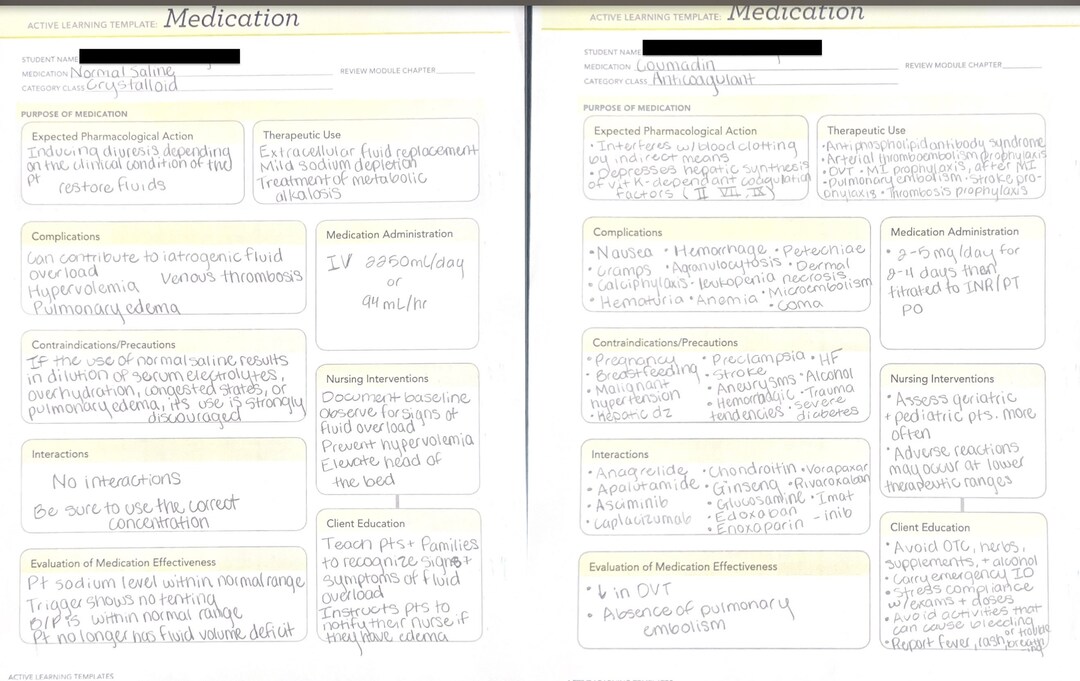 ACTIVE LEARNING TEMPLATE: Medication
STUDENT NAME
MEDICATION Normal Saline
REVIEW MODULE CHAPTER
CATEGORY CLASS Crystalloid
PURPOSE OF MEDICATION
Expected Pharmacological Action
Inducing diuresis depending
on the clinical condition of the
pt
restore fluids
Therapeutic Use
Extracellular fluid replacement
Mild sodium depletion
Treatment of metabolic
alkalosis
Complications
Can contribute to iatrogenic fluid
overload
Venous thrombosis
Hypervolemia
Pulmonary edema
Medication Administration
IV 2250mL/day
or
94 mL/hr
Contraindications/Precautions
If the use of normal saline results
in dilution of serum electrolytes,
overhydration, congested states, or
pulmonary edema, it's use is strongly
discouraged
Nursing Interventions
Document baseline
Observe for signs of
fluid overload
Prevent hypervolemia
Elevate head of
the bed
Interactions
No interactions
Be sure to use the correct
concentration
Evaluation of Medication Effectiveness
Pt sodium level within normal range
Trigger shows no tenting
B/P is within normal range
Pt no longer has fluid volume deficit
Client Education
Teach pts + families
to recognize signs +
symptoms of fluid
overload
Instructs pts to
notify their nurse if
they have edema
ACTIVE LEARNING TEMPLATES
ACTIVE LEARNING TEMPLATE: Medication
STUDENT NAME
MEDICATION Coumadin
REVIEW MODULE CHAPTER
CATEGORY CLASS Anticoagulant
PURPOSE OF MEDICATION
Expected Pharmacological Action
• Interferes w/blood clotting
by indirect means
• Depresses hepatic synthesis
of vit K-dependant coagulation
factors (II VII, IX)
Therapeutic Use
• Antiphospholipid antibody syndrome
• Arterial thromboembolism prophylaxis
• DVT • MI prophylaxis, after MI
• Pulmonary embolism • Stroke pro-
phylaxis • Thrombosis prophylaxis
Complications
• Nausea • Hemorrhage • Petechiae
• Cramps • Agranulocytosis • Dermal
• Calciphylaxis • leukopenia necrosis
• Microembolism
• Hematuria • Anemia • Coma
Medication Administration
• 2-5 mg/day for
2-4 days then
titrated to INR/PT
PO
Contraindications/Precautions
• Pregnancy • Preclampsia • HF
• Breastfeeding • Stroke
• Malignant • Aneurysms • Alcohol
hypertension • Hemorradgic • Trauma
• Hepatic dz tendencies • severe
diabetes
Nursing Interventions
• Assess geriatric
+ pediatric pts. more
often
• Adverse reactions
may occur at lower
therapeutic ranges
Interactions
• Anagrelide • Chondroitin • Vorapaxar
• Apalutamide • Ginseng • Rivaroxaban
• Asciminib • Glucosamine • Imat
• Caplacizumab • Edoxaban -inib
• Enoxaparin
Evaluation of Medication Effectiveness
• ↓ in DVT
• Absence of pulmonary
embolism
Client Education
• Avoid OTC, herbs,
supplements, + alcohol
• Carry emergency ID
• Stress compliance
w/exams + doses
• Avoid activities that
can cause bleeding
• Report fever, rash, or trouble
breathing